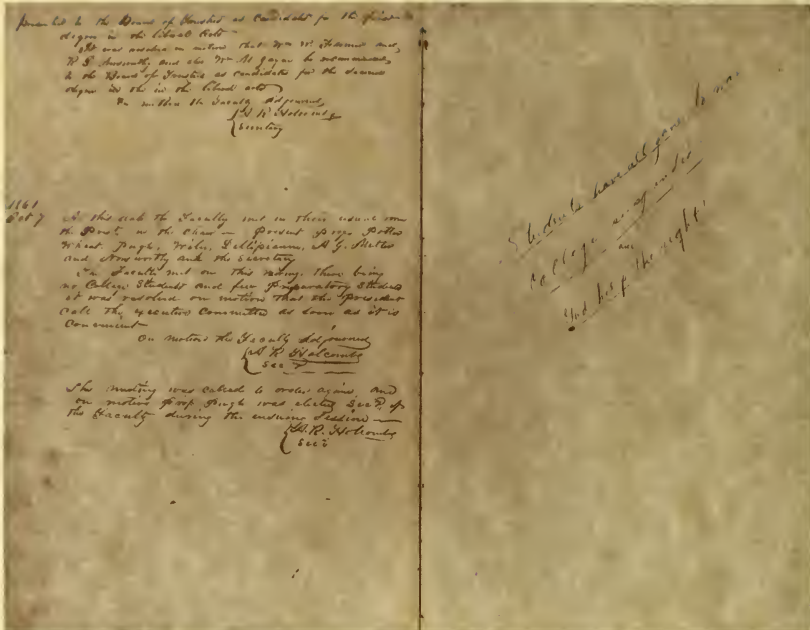 to the Board of Trustees as Candidates for the first
degree in the liberal Arts
It was resolved on motion that Wm W. and
and also Wm M be recommended
to the Board of Trustees as candidates for the second
degree in the liberal arts
On motion the Faculty Adjourned
A R Holcombe
Secretary
1861
Oct 7
At this date the Faculty met in their usual room
the Prest. in the Chair – Present Profs. Potts
Wheat. Pugh,
and Noxworthy and the secretary
Faculty met on this day. there being
no College Students and few Preparatory Students
it was resolved on motion that the President
call the executive Committee as soon as it is
Convenient
On motion the Faculty Adjourned
A R Holcombe
Sec
The meeting was called to order again, and
on motion Prof Pugh was elected Secy. of
the Faculty during the ensuing Session —
A. R. Holcombe
Secy
Students have all gone to war
College suspended
and God help the right!